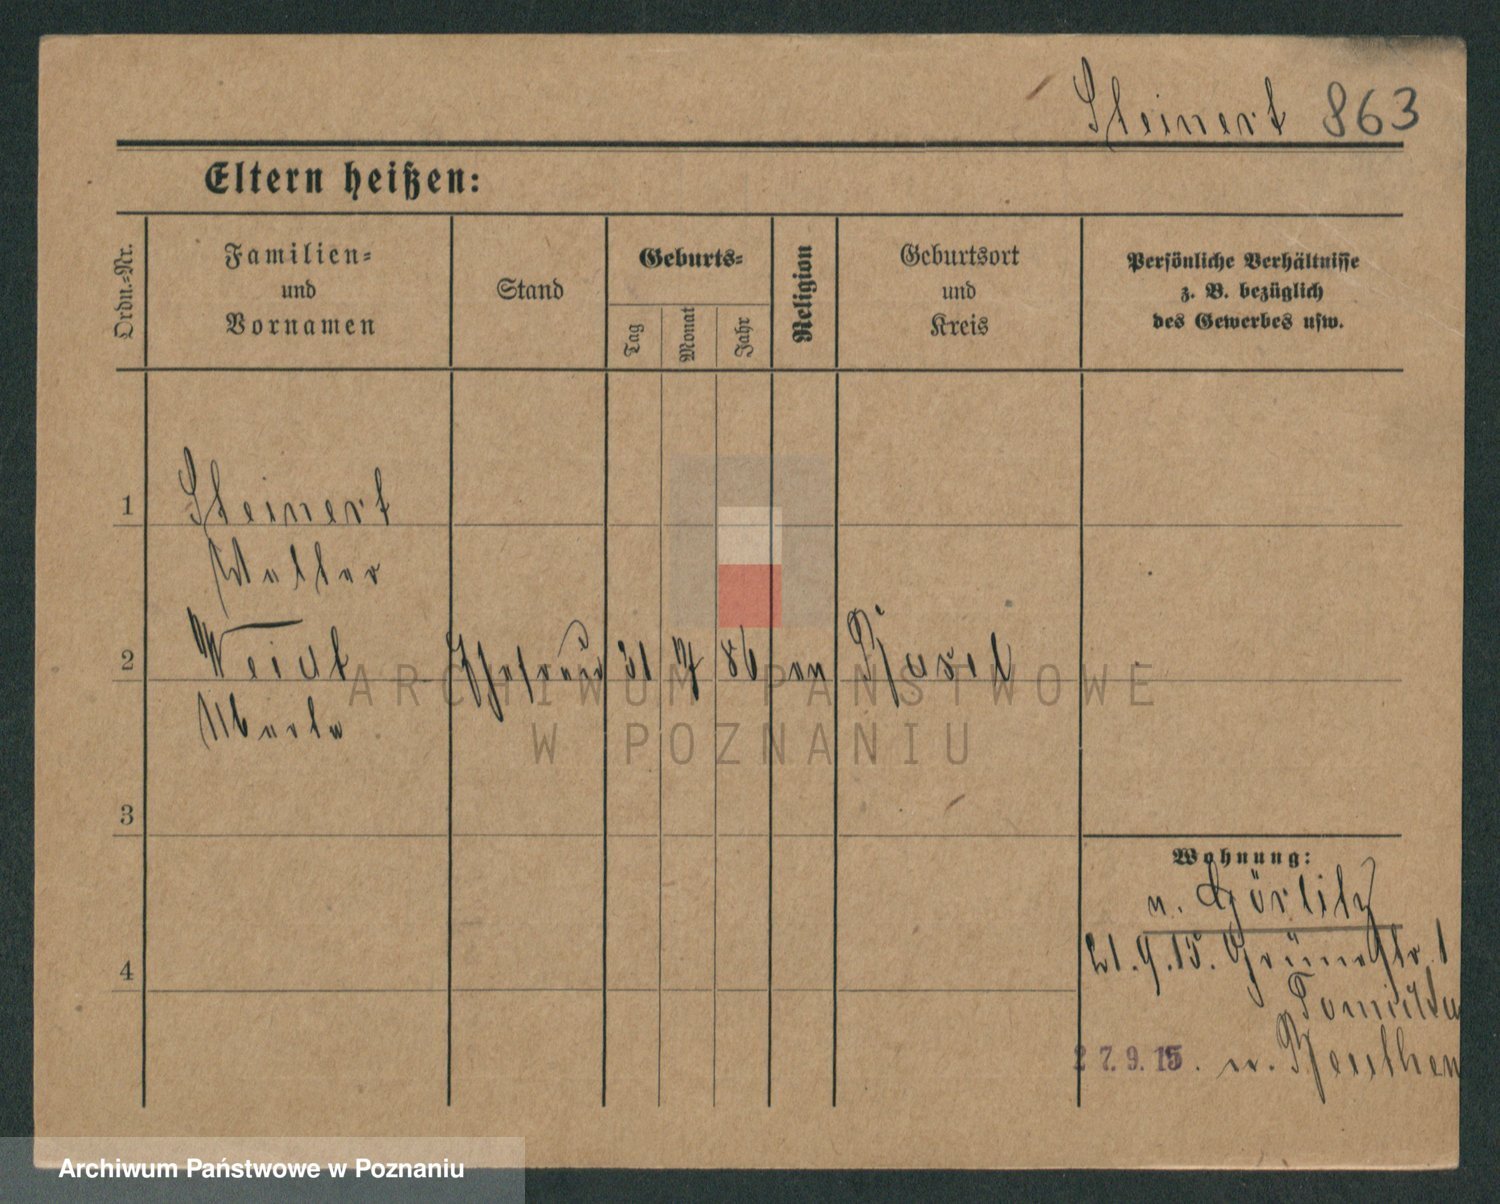 Steinert 863
Eltern heißen:
Ordn.-Nr.
Familien-
und
Vornamen
Stand
Geburts-
Tag
Monat
Jahr
Religion
Geburtsort
und
Kreis
Persönliche Verhältnisse
z. B. bezüglich
des Gewerbes usw.
1 Steinert
Walter
2 Ehefrau 31 7 86 ev
3
4
Wohnung:
n. Görlitz
21.9.15. Grünestr. 1
27.9.15. n. Beuthen
ARCHIWUM PAŃSTWOWE
W POZNANIU
Archiwum Państwowe w Poznaniu